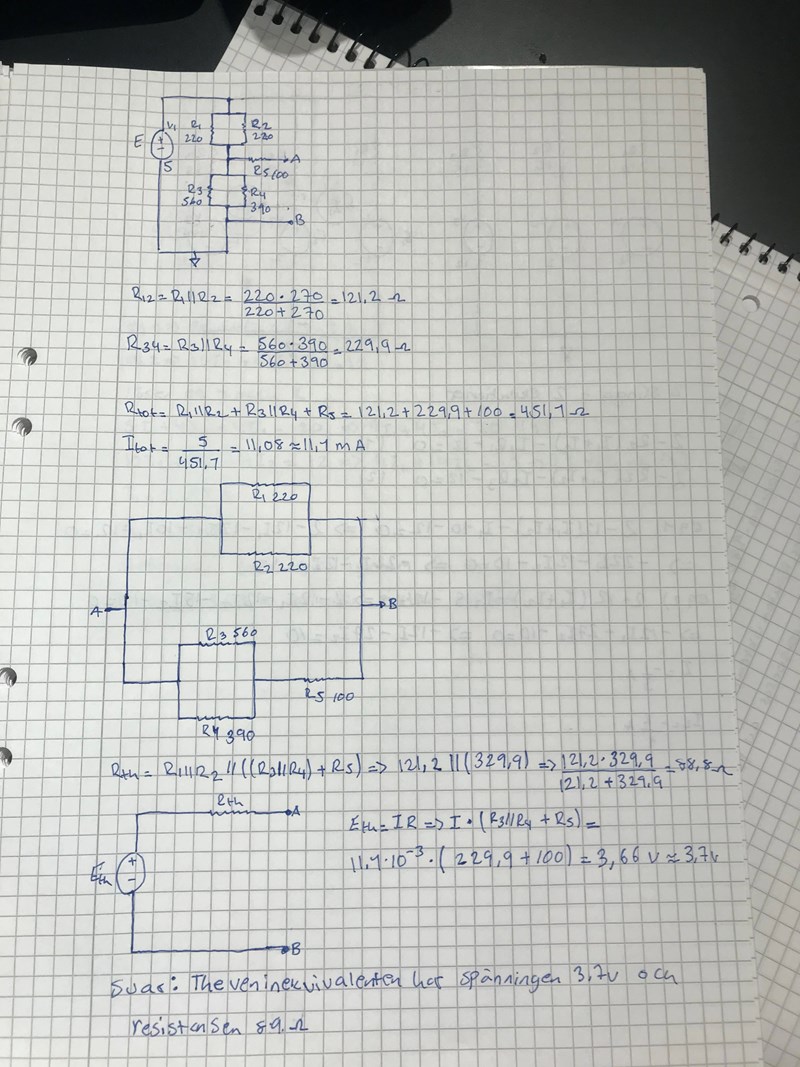 V1
R1
220
R2
220
E
5
A
R5 100
R3
560
R4
390
B
R12 = R1//R2 = 220·270 / 220+270 = 121,2 Ω
R34 = R3//R4 = 560·390 / 560+390 = 229,9 Ω
Rtot = R1//R2 + R3//R4 + R5 = 121,2+229,9+100 = 451,1 Ω
Itot = 5 / 451,1 = 11,08 ≈ 11,1 mA
R1 220
R2 220
A
B
R3 560
R5 100
R4 390
Rth = R1//R2 // ((R3//R4) + R5) => 121,2 || (329,9) => 121,2·329,9 / 121,2+329,9 = 88,8 Ω
Rth
A
Eth = IR => I • (R3//R4 + R5) =
11,1·10⁻³ · (229,9 + 100) = 3,66 v ≈ 3,7v
Eth
B
Svar: Theveninekvivalenten har spänningen 3,7v och
resistansen 89 Ω